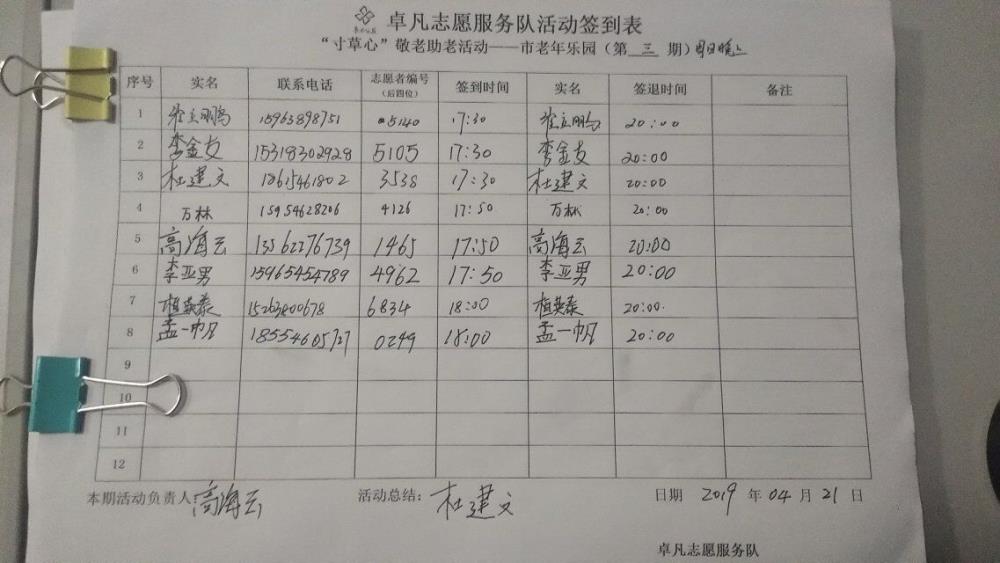 卓凡志愿服务队活动签到表
“寸草心”敬老助老活动——市老年乐园（第 三 期）周日晚上
序号 实名 联系电话 志愿者编号（后四位） 签到时间 实名 签退时间 备注
1 立鹏 15963898751 5140 17:30 立鹏 20:00
2 李金友 15318302928 5105 17:30 李金友 20:00
3 杜建文 18615461802 3538 17:30 杜建文 20:00
4 万林 15954628206 4126 17:50 万林 20:00
5 高海云 13562276739 1465 17:50 高海云 20:00
6 李亚男 15965454789 4962 17:50 李亚男 20:00
7 英泰 15263800678 6834 18:00 英泰 20:00
8 孟一帆 18554605727 0249 18:00 孟一帆 20:00
9
10
11
12
本期活动负责人：高海云 活动总结：杜建文 日期 2019 年 04 月 21 日
卓凡志愿服务队